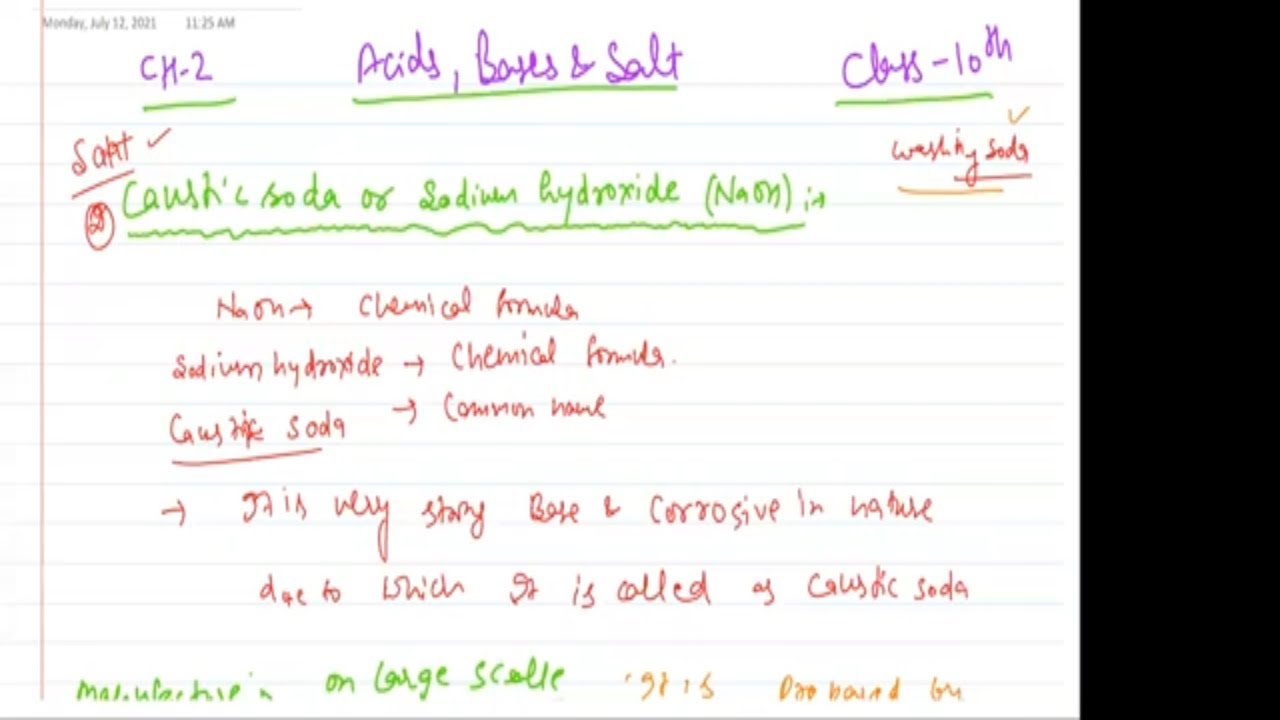 Monday, July 12, 2021 11:25 AM
CH-2 Acids, Bases & Salt Class-10th
Salt ✓
washing soda ✓
② Caustic soda or Sodium hydroxide (NaOH) :→
NaOH → Chemical formula
Sodium hydroxide → Chemical formula.
Caustic soda → Common name
→ It is very strong Base & Corrosive in nature
due to which It is called as Caustic soda
on large scalle It is